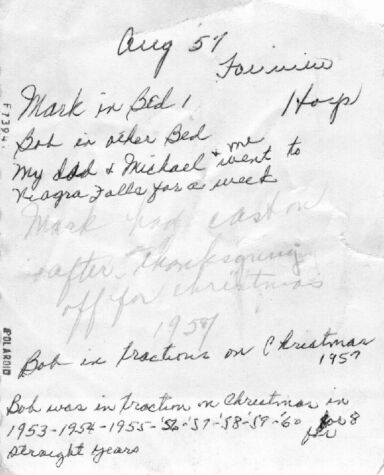 Aug 57
Fairview
Mark in BED 1 Hosp
Bob in other Bed
My dad & Michael & me went to
Niagra Falls for a week
Mark had cast on
after Thanksgiving
off for christmas
1957
Bob in Tractions on Christmas
1957
Bob was in Traction on Christmas in
1953-1954-1955-'56-'57-'58-'59-'60 for 8
straight years
F7394
POLAROID